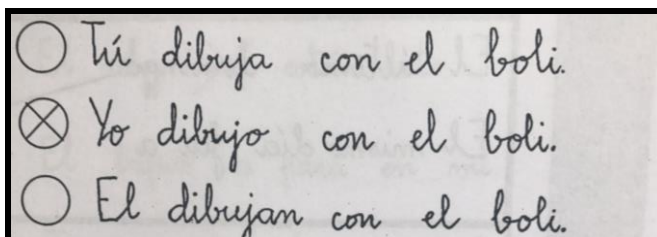 Tú dibuja con el boli.
Yo dibujo con el boli.
El dibujan con el boli.